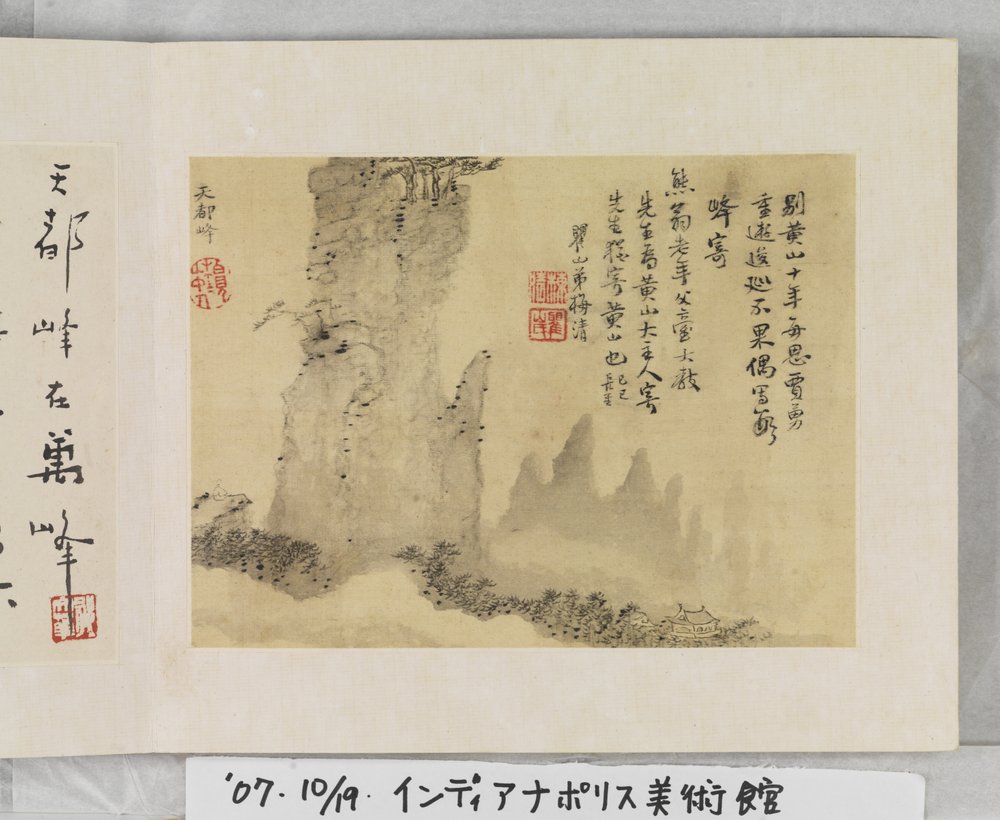 別黄山十年每思賈勇
重遊逡巡不果偶写數
峰寄
熊翁老年父臺大教
先生為黄山大主人寄
先生猶寄黄山也 己巳
瞿山弟梅清
天都峰
天都峰在萬峰
'07. 10/19. インディアナポリス美術館